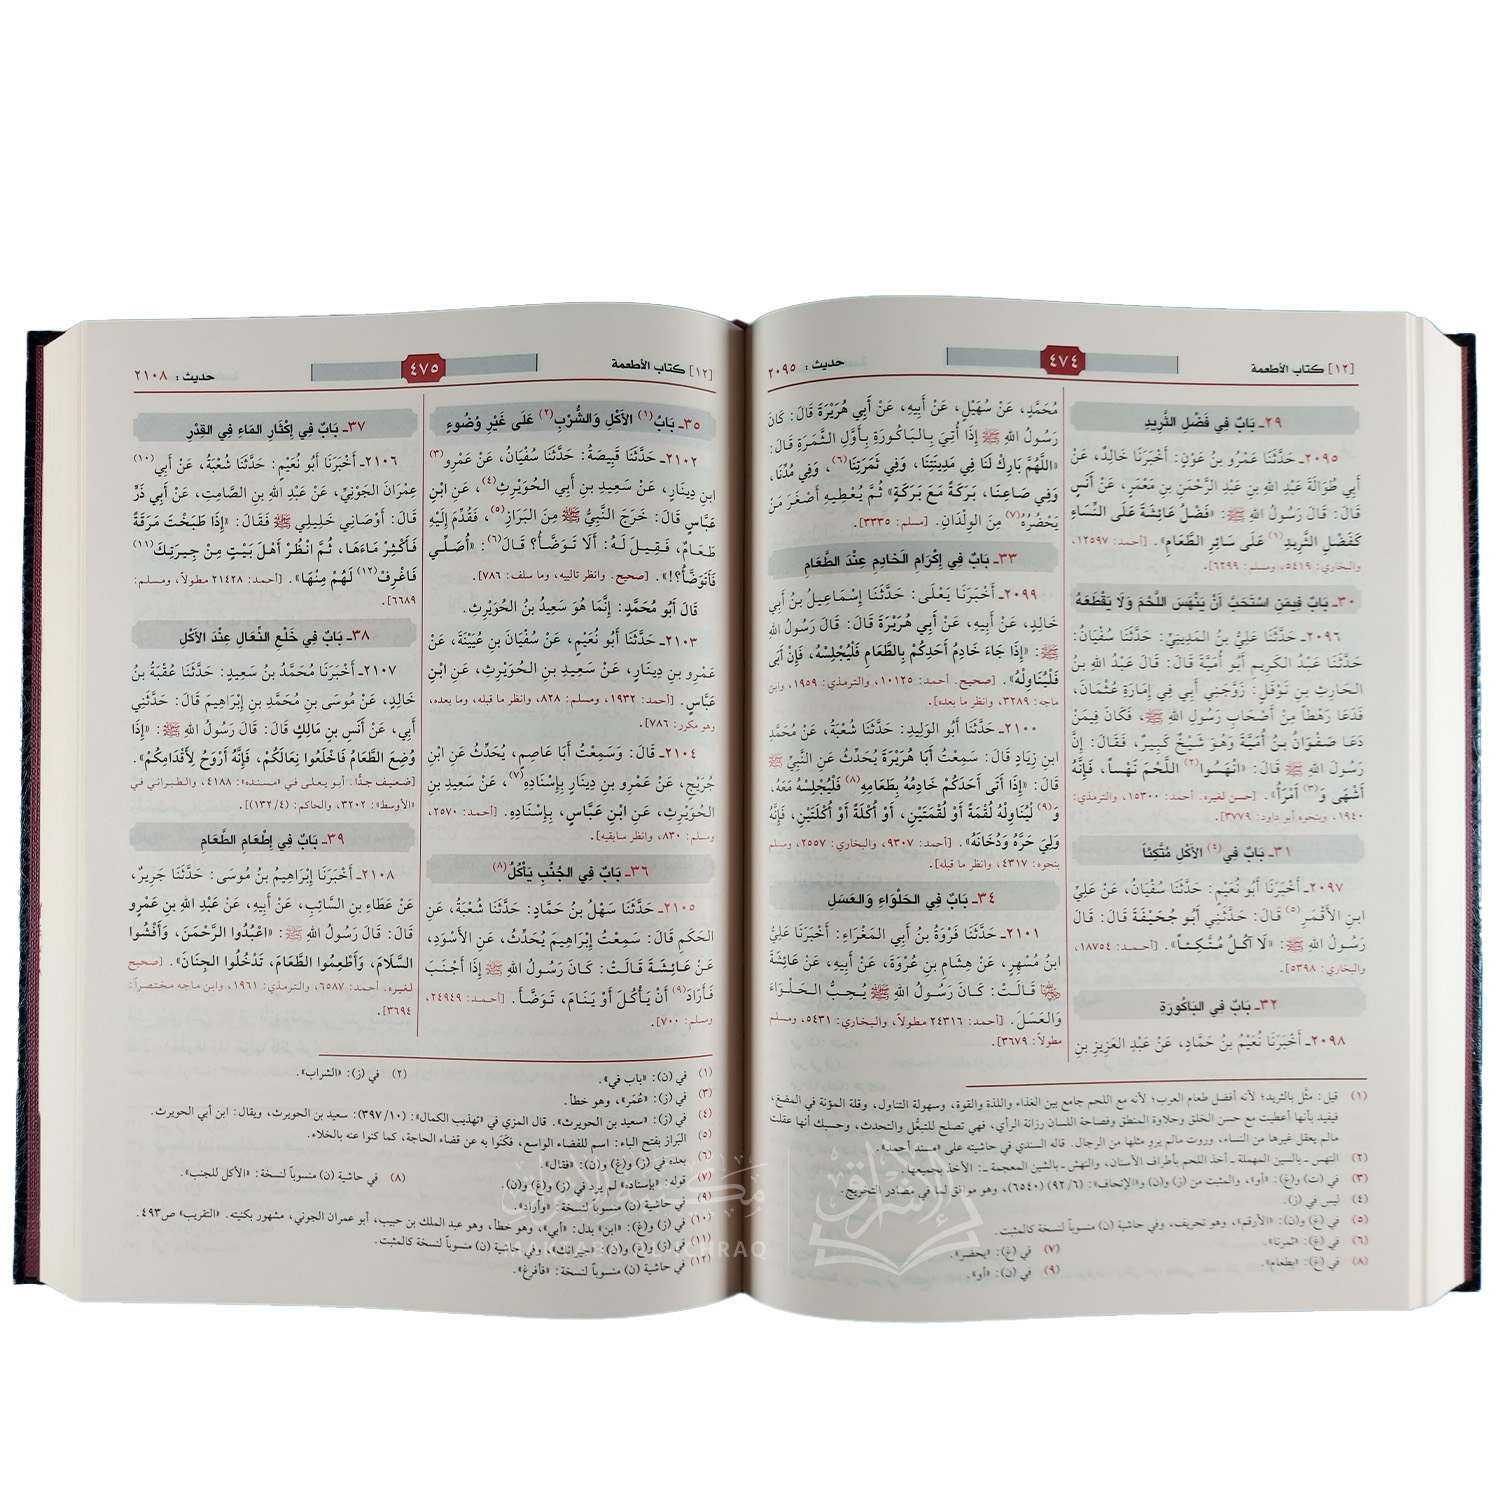 [١٢] كتاب الأطعمة
٤٧٤
حديث: ٢٠٩٥
٢٩ـ بَابٌ فِي فَضْلِ الثَّرِيدِ
٢٠٩٥ـ حَدَّثَنَا عَمْرُو بنُ عَوْنٍ: أَخْبَرَنَا خَالِدٌ، عَنْ
أَبِي طُوَالَةَ عَبْدِ اللهِ بنِ عَبْدِ الرَّحْمَنِ بنِ مَعْمَرٍ، عَنْ أَنَسٍ
قَالَ: قَالَ رَسُولُ اللهِ ﷺ: «فَضْلُ عَائِشَةَ عَلَى النِّسَاءِ
كَفَضْلِ الثَّرِيدِ(١) عَلَى سَائِرِ الطَّعَامِ». [أحمد: ١٢٥٩٧،
والبخاري: ٥٤١٩، ومسلم: ٦٢٩٩].
٣٠ـ بَابٌ فِيمَنِ اسْتَحَبَّ أَنْ يَنْهَسَ اللَّحْمَ وَلَا يَقْطَعَهُ
٢٠٩٦ـ حَدَّثَنَا عَلِيُّ بنُ المَدِينِيِّ: حَدَّثَنَا سُفْيَانُ:
حَدَّثَنَا عَبْدُ الكَرِيمِ أَبُو أُمَيَّةَ قَالَ: قَالَ عَبْدُ اللهِ بنُ
الحَارِثِ بنِ نَوْفَلٍ: زَوَّجَنِي أَبِي فِي إِمَارَةِ عُثْمَانَ،
فَدَعَا رَهْطاً مِنْ أَصْحَابِ رَسُولِ اللهِ ﷺ، فَكَانَ فِيمَنْ
دَعَا صَفْوَانُ بنُ أُمَيَّةَ وَهُوَ شَيْخٌ كَبِيرٌ، فَقَالَ: إِنَّ
رَسُولَ اللهِ ﷺ قَالَ: «انْهَسُوا(٢) اللَّحْمَ نَهْساً، فَإِنَّهُ
أَشْهَى وَ(٣) أَمْرَأُ». [حسن لغيره. أحمد: ١٥٣٠٠، والترمذي:
١٩٤٠، وبنحوه أبو داود: ٣٧٧٩].
٣١ـ بَابٌ فِي(٤) الأَكْلِ مُتَّكِئاً
٢٠٩٧ـ أَخْبَرَنَا أَبُو نُعَيْمٍ: حَدَّثَنَا سُفْيَانُ، عَنْ عَلِيِّ
ابنِ الأَقْمَرِ(٥) قَالَ: حَدَّثَنِي أَبُو جُحَيْفَةَ قَالَ: قَالَ
رَسُولُ اللهِ ﷺ: «لَا آكُلُ مُتَّكِئاً». [أحمد: ١٨٧٥٤،
والبخاري: ٥٣٩٨].
٣٢ـ بَابٌ فِي البَاكُورَةِ
٢٠٩٨ـ أَخْبَرَنَا نُعَيْمُ بنُ حَمَّادٍ، عَنْ عَبْدِ العَزِيزِ بنِ
مُحَمَّدٍ، عَنْ سُهَيْلٍ، عَنْ أَبِيهِ، عَنْ أَبِي هُرَيْرَةَ قَالَ: كَانَ
رَسُولُ اللهِ ﷺ إِذَا أُتِيَ بِالبَاكُورَةِ بِأَوَّلِ الثَّمَرَةِ قَالَ:
«اللَّهُمَّ بَارِكْ لَنَا فِي مَدِينَتِنَا، وَفِي ثَمَرَتِنَا(٦)، وَفِي مُدِّنَا،
وَفِي صَاعِنَا، بَرَكَةً مَعَ بَرَكَةٍ» ثُمَّ يُعْطِيهِ أَصْغَرَ مَنْ
يَحْضُرُهُ(٧) مِنَ الوِلْدَانِ. [مسلم: ٣٣٣٥].
٣٣ـ بَابٌ فِي إِكْرَامِ الخَادِمِ عِنْدَ الطَّعَامِ
٢٠٩٩ـ أَخْبَرَنَا يَعْلَى: حَدَّثَنَا إِسْمَاعِيلُ بنُ أَبِي
خَالِدٍ، عَنْ أَبِيهِ، عَنْ أَبِي هُرَيْرَةَ قَالَ: قَالَ رَسُولُ اللهِ
ﷺ: «إِذَا جَاءَ خَادِمُ أَحَدِكُمْ بِالطَّعَامِ فَلْيُجْلِسْهُ، فَإِنْ أَبَى
فَلْيُنَاوِلْهُ». [صحيح. أحمد: ١٠١٢٥، والترمذي: ١٩٥٩، وابن
ماجه: ٣٢٨٩، وانظر ما بعده].
٢١٠٠ـ حَدَّثَنَا أَبُو الوَلِيدِ: حَدَّثَنَا شُعْبَةُ، عَنْ مُحَمَّدِ
ابنِ زِيَادٍ قَالَ: سَمِعْتُ أَبَا هُرَيْرَةَ يُحَدِّثُ عَنِ النَّبِيِّ ﷺ
قَالَ: «إِذَا أَتَى أَحَدَكُمْ خَادِمُهُ بِطَعَامِهِ(٨) فَلْيُجْلِسْهُ مَعَهُ،
وَ(٩) لْيُنَاوِلْهُ لُقْمَةً أَوْ لُقْمَتَيْنِ، أَوْ أُكْلَةً أَوْ أُكْلَتَيْنِ، فَإِنَّهُ
وَلِيَ حَرَّهُ وَدُخَانَهُ». [أحمد: ٩٣٠٧، والبخاري: ٢٥٥٧، ومسلم
بنحوه: ٤٣١٧، وانظر ما قبله].
٣٤ـ بَابٌ فِي الحَلْوَاءِ وَالعَسَلِ
٢١٠١ـ حَدَّثَنَا فَرْوَةُ بنُ أَبِي المَغْرَاءِ: أَخْبَرَنَا عَلِيُّ
ابنُ مُسْهِرٍ، عَنْ هِشَامِ بنِ عُرْوَةَ، عَنْ أَبِيهِ، عَنْ عَائِشَةَ
قَالَتْ: كَانَ رَسُولُ اللهِ ﷺ يُحِبُّ الحَلْوَاءَ
وَالعَسَلَ. [أحمد: ٢٤٣١٦ مطولاً، والبخاري: ٥٤٣١، ومسلم
مطولاً: ٣٦٧٩].
(١) قيل: مثّل بالثريد؛ لأنه أفضل طعام العرب؛ لأنه مع اللحم جامع بين الغذاء واللذة والقوة، وسهولة التناول، وقلة المؤنة في المضغ،
فيفيد بأنها أعطيت مع حسن الخلق وحلاوة المنطق وفصاحة اللسان رزانة الرأي، فهي تصلح للتبعُّل والتحدث، وحسبك أنها عقلت
مالم يعقل غيرها من النساء، وروت مالم يرو مثلها من الرجال. قاله السندي في حاشيته على «مسند أحمد».
(٢) النهس ـ بالسين المهملة ـ أخذ اللحم بأطراف الأسنان، والنهش ـ بالشين المعجمة ـ: الأخذ بجميعها.
(٣) في (ت) و(غ): «أو»، والمثبت من (ز) و(ن) و«الإتحاف»: (٩٢/٦) (٦٥٤٠)، وهو موافق لما في مصادر التخريج.
(٤) ليس في (ز).
(٥) في (غ) و(ن): «الأرقم»، وهو تحريف، وفي حاشية (ن) منسوباً لنسخة كالمثبت.
(٦) في (غ): «ثمرنا». (٧) في (غ): «يحضر».
(٨) في (غ): «بطعام». (٩) في (ن): «أو».
[١٢] كتاب الأطعمة
٤٧٥
حديث: ٢١٠٨
٣٥ـ بَابُ(١) الأَكْلِ وَالشُّرْبِ(٢) عَلَى غَيْرِ وُضُوءٍ
٢١٠٢ـ حَدَّثَنَا قَبِيصَةُ: حَدَّثَنَا سُفْيَانُ، عَنْ عَمْرِو(٣)
ابنِ دِينَارٍ، عَنْ سَعِيدِ بنِ أَبِي الحُوَيْرِثِ(٤)، عَنِ ابْنِ
عَبَّاسٍ قَالَ: خَرَجَ النَّبِيُّ ﷺ مِنَ البَرَازِ(٥)، فَقُدِّمَ إِلَيْهِ
طَعَامٌ، فَقِيلَ لَهُ: أَلَا تَوَضَّأُ؟ قَالَ(٦): «أُصَلِّي
فَأَتَوَضَّأُ؟!». [صحيح. وانظر تالييه، وما سلف: ٧٨٦].
قَالَ أَبُو مُحَمَّدٍ: إِنَّمَا هُوَ سَعِيدُ بنُ الحُوَيْرِثِ.
٢١٠٣ـ حَدَّثَنَا أَبُو نُعَيْمٍ، عَنْ سُفْيَانَ بنِ عُيَيْنَةَ، عَنْ
عَمْرِو بنِ دِينَارٍ، عَنْ سَعِيدِ بنِ الحُوَيْرِثِ، عَنِ ابْنِ
عَبَّاسٍ. [أحمد: ١٩٣٢، ومسلم: ٨٢٨، وانظر ما قبله، وما بعده،
وهو مكرر: ٧٨٦].
٢١٠٤ـ قَالَ: وَسَمِعْتُ أَبَا عَاصِمٍ، يُحَدِّثُ عَنِ ابْنِ
جُرَيْجٍ، عَنْ عَمْرِو بنِ دِينَارٍ بِإِسْنَادِهِ(٧)، عَنْ سَعِيدِ بنِ
الحُوَيْرِثِ، عَنِ ابْنِ عَبَّاسٍ، بِإِسْنَادِهِ. [أحمد: ٢٥٧٠،
ومسلم: ٨٣٠، وانظر سابقيه].
٣٦ـ بَابٌ فِي الجُنُبِ يَأْكُلُ(٨)
٢١٠٥ـ حَدَّثَنَا سَهْلُ بنُ حَمَّادٍ: حَدَّثَنَا شُعْبَةُ، عَنِ
الحَكَمِ قَالَ: سَمِعْتُ إِبْرَاهِيمَ يُحَدِّثُ، عَنِ الأَسْوَدِ،
عَنْ عَائِشَةَ قَالَتْ: كَانَ رَسُولُ اللهِ ﷺ إِذَا أَجْنَبَ
فَأَرَادَ(٩) أَنْ يَأْكُلَ أَوْ يَنَامَ، تَوَضَّأَ. [أحمد: ٢٤٩٤٩،
ومسلم: ٧٠٠].
٣٧ـ بَابٌ فِي إِكْثَارِ المَاءِ فِي القِدْرِ
٢١٠٦ـ أَخْبَرَنَا أَبُو نُعَيْمٍ: حَدَّثَنَا شُعْبَةُ، عَنْ أَبِي(١٠)
عِمْرَانَ الجَوْنِيِّ، عَنْ عَبْدِ اللهِ بنِ الصَّامِتِ، عَنْ أَبِي ذَرٍّ
قَالَ: أَوْصَانِي خَلِيلِي ﷺ فَقَالَ: «إِذَا طَبَخْتَ مَرَقَةً
فَأَكْثِرْ مَاءَهَا، ثُمَّ انْظُرْ أَهْلَ بَيْتٍ مِنْ جِيرَتِكَ(١١)
فَاغْرِفْ(١٢) لَهُمْ مِنْهَا». [أحمد: ٢١٤٢٨ مطولاً، ومسلم:
٦٦٨٩].
٣٨ـ بَابٌ فِي خَلْعِ النِّعَالِ عِنْدَ الأَكْلِ
٢١٠٧ـ أَخْبَرَنَا مُحَمَّدُ بنُ سَعِيدٍ: حَدَّثَنَا عُقْبَةُ بنُ
خَالِدٍ، عَنْ مُوسَى بنِ مُحَمَّدِ بنِ إِبْرَاهِيمَ قَالَ: حَدَّثَنِي
أَبِي، عَنْ أَنَسِ بنِ مَالِكٍ قَالَ: قَالَ رَسُولُ اللهِ ﷺ: «إِذَا
وُضِعَ الطَّعَامُ فَاخْلَعُوا نِعَالَكُمْ، فَإِنَّهُ أَرْوَحُ لِأَقْدَامِكُمْ».
[ضعيف جدًّا. أبو يعلى في «مسنده»: ٤١٨٨، والطبراني في
«الأوسط»: ٣٢٠٢، والحاكم: (١٣٢/٤)].
٣٩ـ بَابٌ فِي إِطْعَامِ الطَّعَامِ
٢١٠٨ـ أَخْبَرَنَا إِبْرَاهِيمُ بنُ مُوسَى: حَدَّثَنَا جَرِيرٌ،
عَنْ عَطَاءِ بنِ السَّائِبِ، عَنْ أَبِيهِ، عَنْ عَبْدِ اللهِ بنِ عَمْرٍو
قَالَ: قَالَ رَسُولُ اللهِ ﷺ: «اعْبُدُوا الرَّحْمَنَ، وَأَفْشُوا
السَّلَامَ، وَأَطْعِمُوا الطَّعَامَ، تَدْخُلُوا الجِنَانَ». [صحيح
لغيره. أحمد: ٦٥٨٧، والترمذي: ١٩٦١، وابن ماجه مختصراً:
٣٦٩٤].
(١) في (ن): «باب في». (٢) في (ز): «الشراب».
(٣) في (ز): «عُمَر»، وهو خطأ.
(٤) في (ز): «سعيد بن الحويرث». قال المزي في «تهذيب الكمال»: (٣٩٧/١٠): سعيد بن الحويرث، ويقال: ابن أبي الحويرث.
(٥) البَراز بفتح الباء: اسم للفضاء الواسع، فكَنَوا به عن قضاء الحاجة، كما كنوا عنه بالخلاء.
(٦) بعده في (ز) و(غ) و(ن): «فقال».
(٧) قوله: «بإسناده» لم يرد في (ز) و(غ) و(ن). (٨) في حاشية (ن) منسوباً لنسخة: «الأكل للجنب».
(٩) في حاشية (ن) منسوباً لنسخة: «وأراد».
(١٠) في (ز) و(غ): «ابن» بدل: «أبي»، وهو خطأ، وهو عبد الملك بن حبيب، أبو عمران الجوني، مشهور بكنيته. «التقريب» ص٤٩٣.
(١١) في (ز) و(غ) و(ن): «جيرانك»، وفي حاشية (ن) منسوباً لنسخة كالمثبت.
(١٢) في حاشية (ن) منسوباً لنسخة: «فأفرغ».
مكتبة الإشراق
MAKTABAT AL ICHRAQ
الإشراق